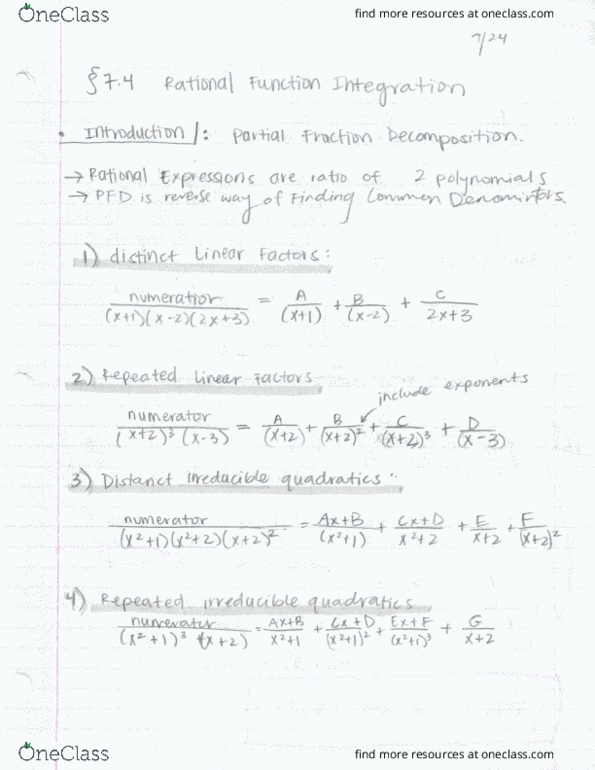 OneClass
find more resources at oneclass.com
7/24
§7.4 Rational Function Integration
• Introduction/: Partial Fraction Decomposition.
→ Rational Expressions are ratio of 2 polynomials
→ PFD is reverse way of Finding Common Denomintors.
1) distinct Linear Factors:
numeratior / (x+1)(x-2)(2x+3) = A/(x+1) + B/(x-2) + C/2x+3
2) Repeated linear Factors
include exponents
numerator / (x+2)³(x-3) = A/(x+2) + B/(x+2)² + C/(x+2)³ + D/(x-3)
3) Distanct irreducible quadratics:
numerator / (x²+1)(x²+2)(x+2)² = Ax+B/(x²+1) + Cx+D/x²+2 + E/x+2 + F/(x+2)²
4) Repeated irreducible quadratics
numerator / (x²+1)³(x+2) = Ax+B/x²+1 + Cx+D/(x²+1)² + Ex+F/(x²+1)³ + G/x+2
OneClass
find more resources at oneclass.com